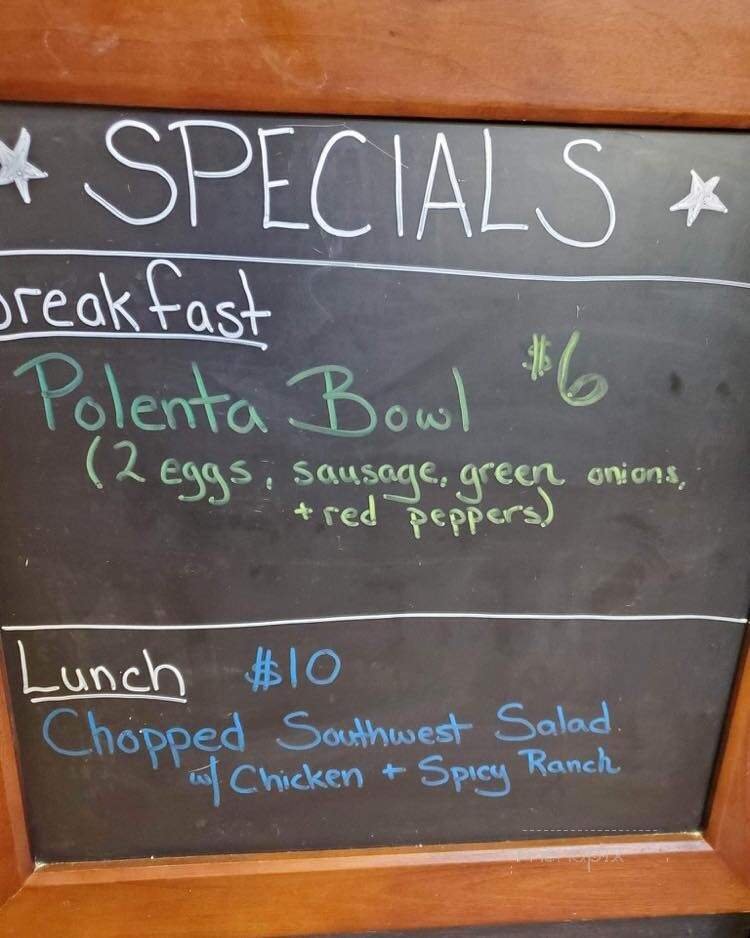 SPECIALS
breakfast
Polenta Bowl $6
(2 eggs, sausage, green onions,
+ red peppers)
Lunch $10
Chopped Southwest Salad
w/ Chicken + Spicy Ranch